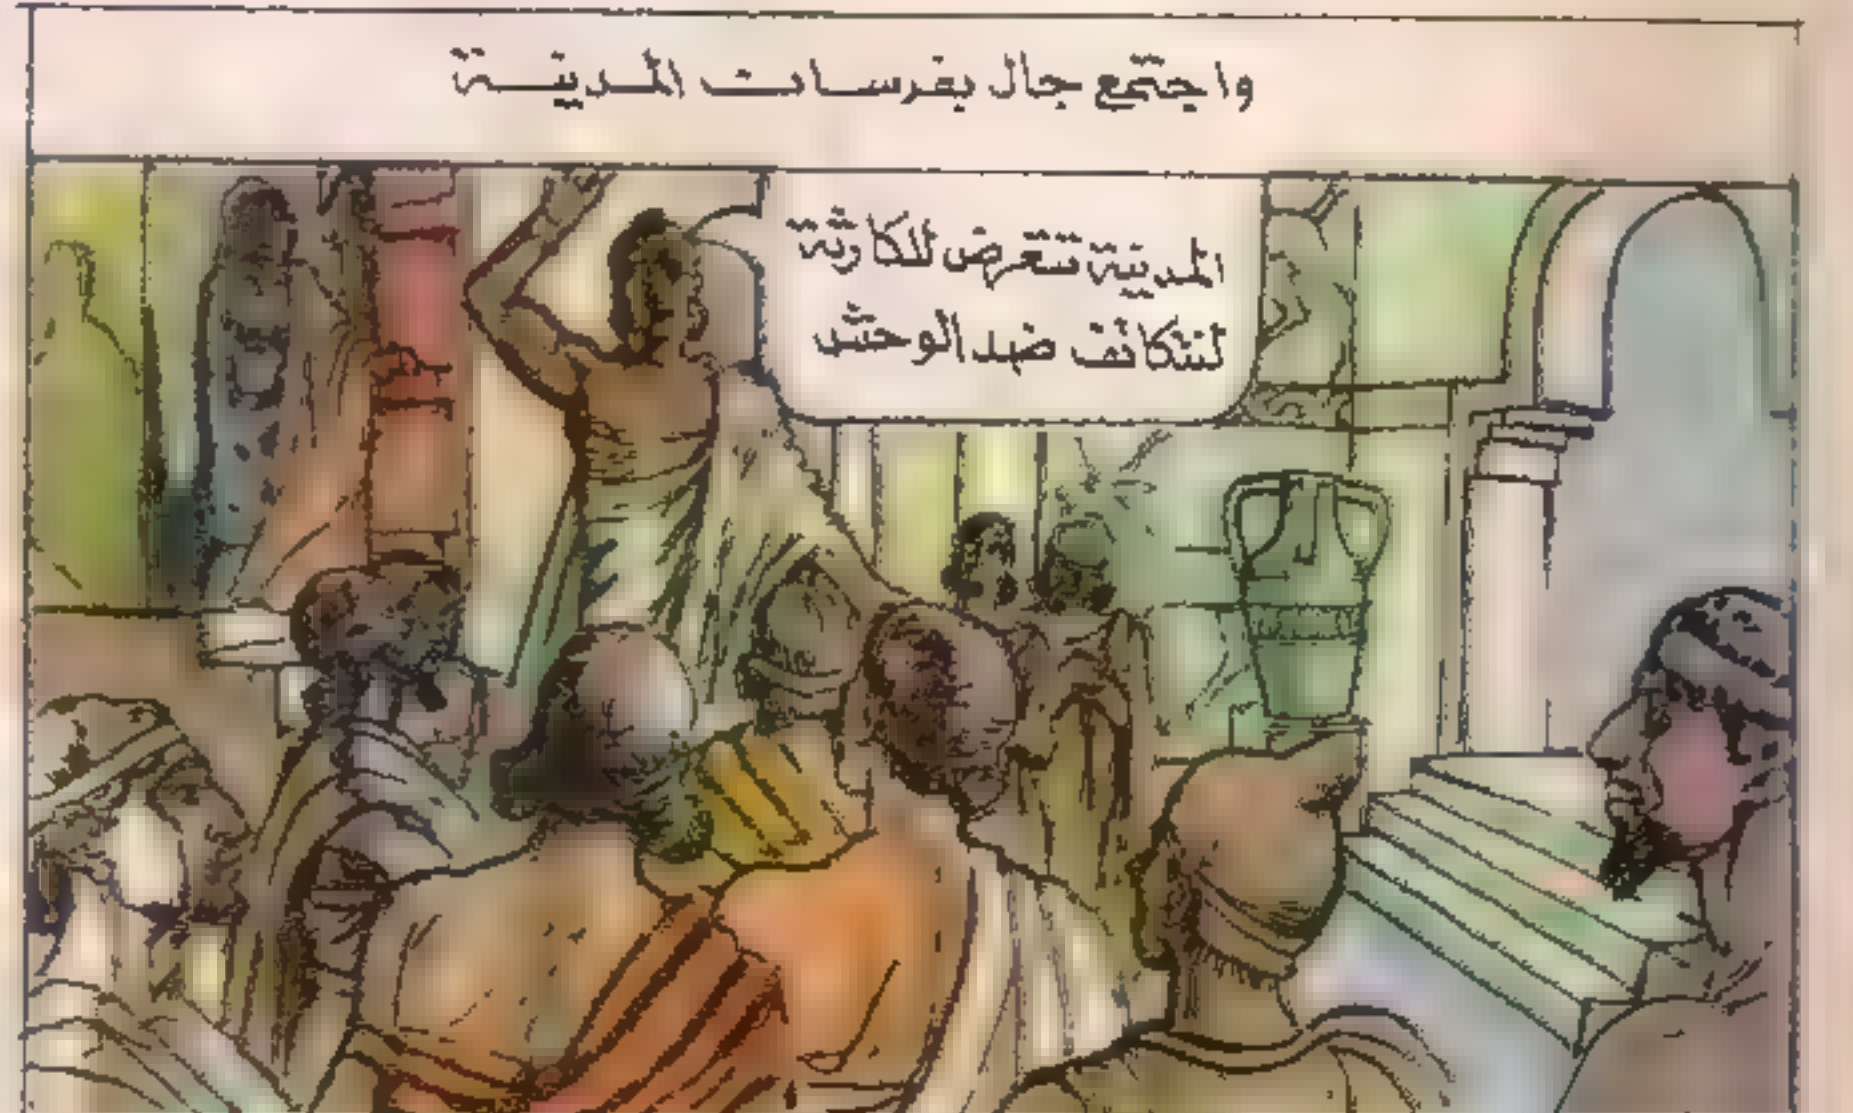 واجتمع جال بفرسات المدينة
المدينة تتعرض للكارثة
لنتكاتف ضد الوحش